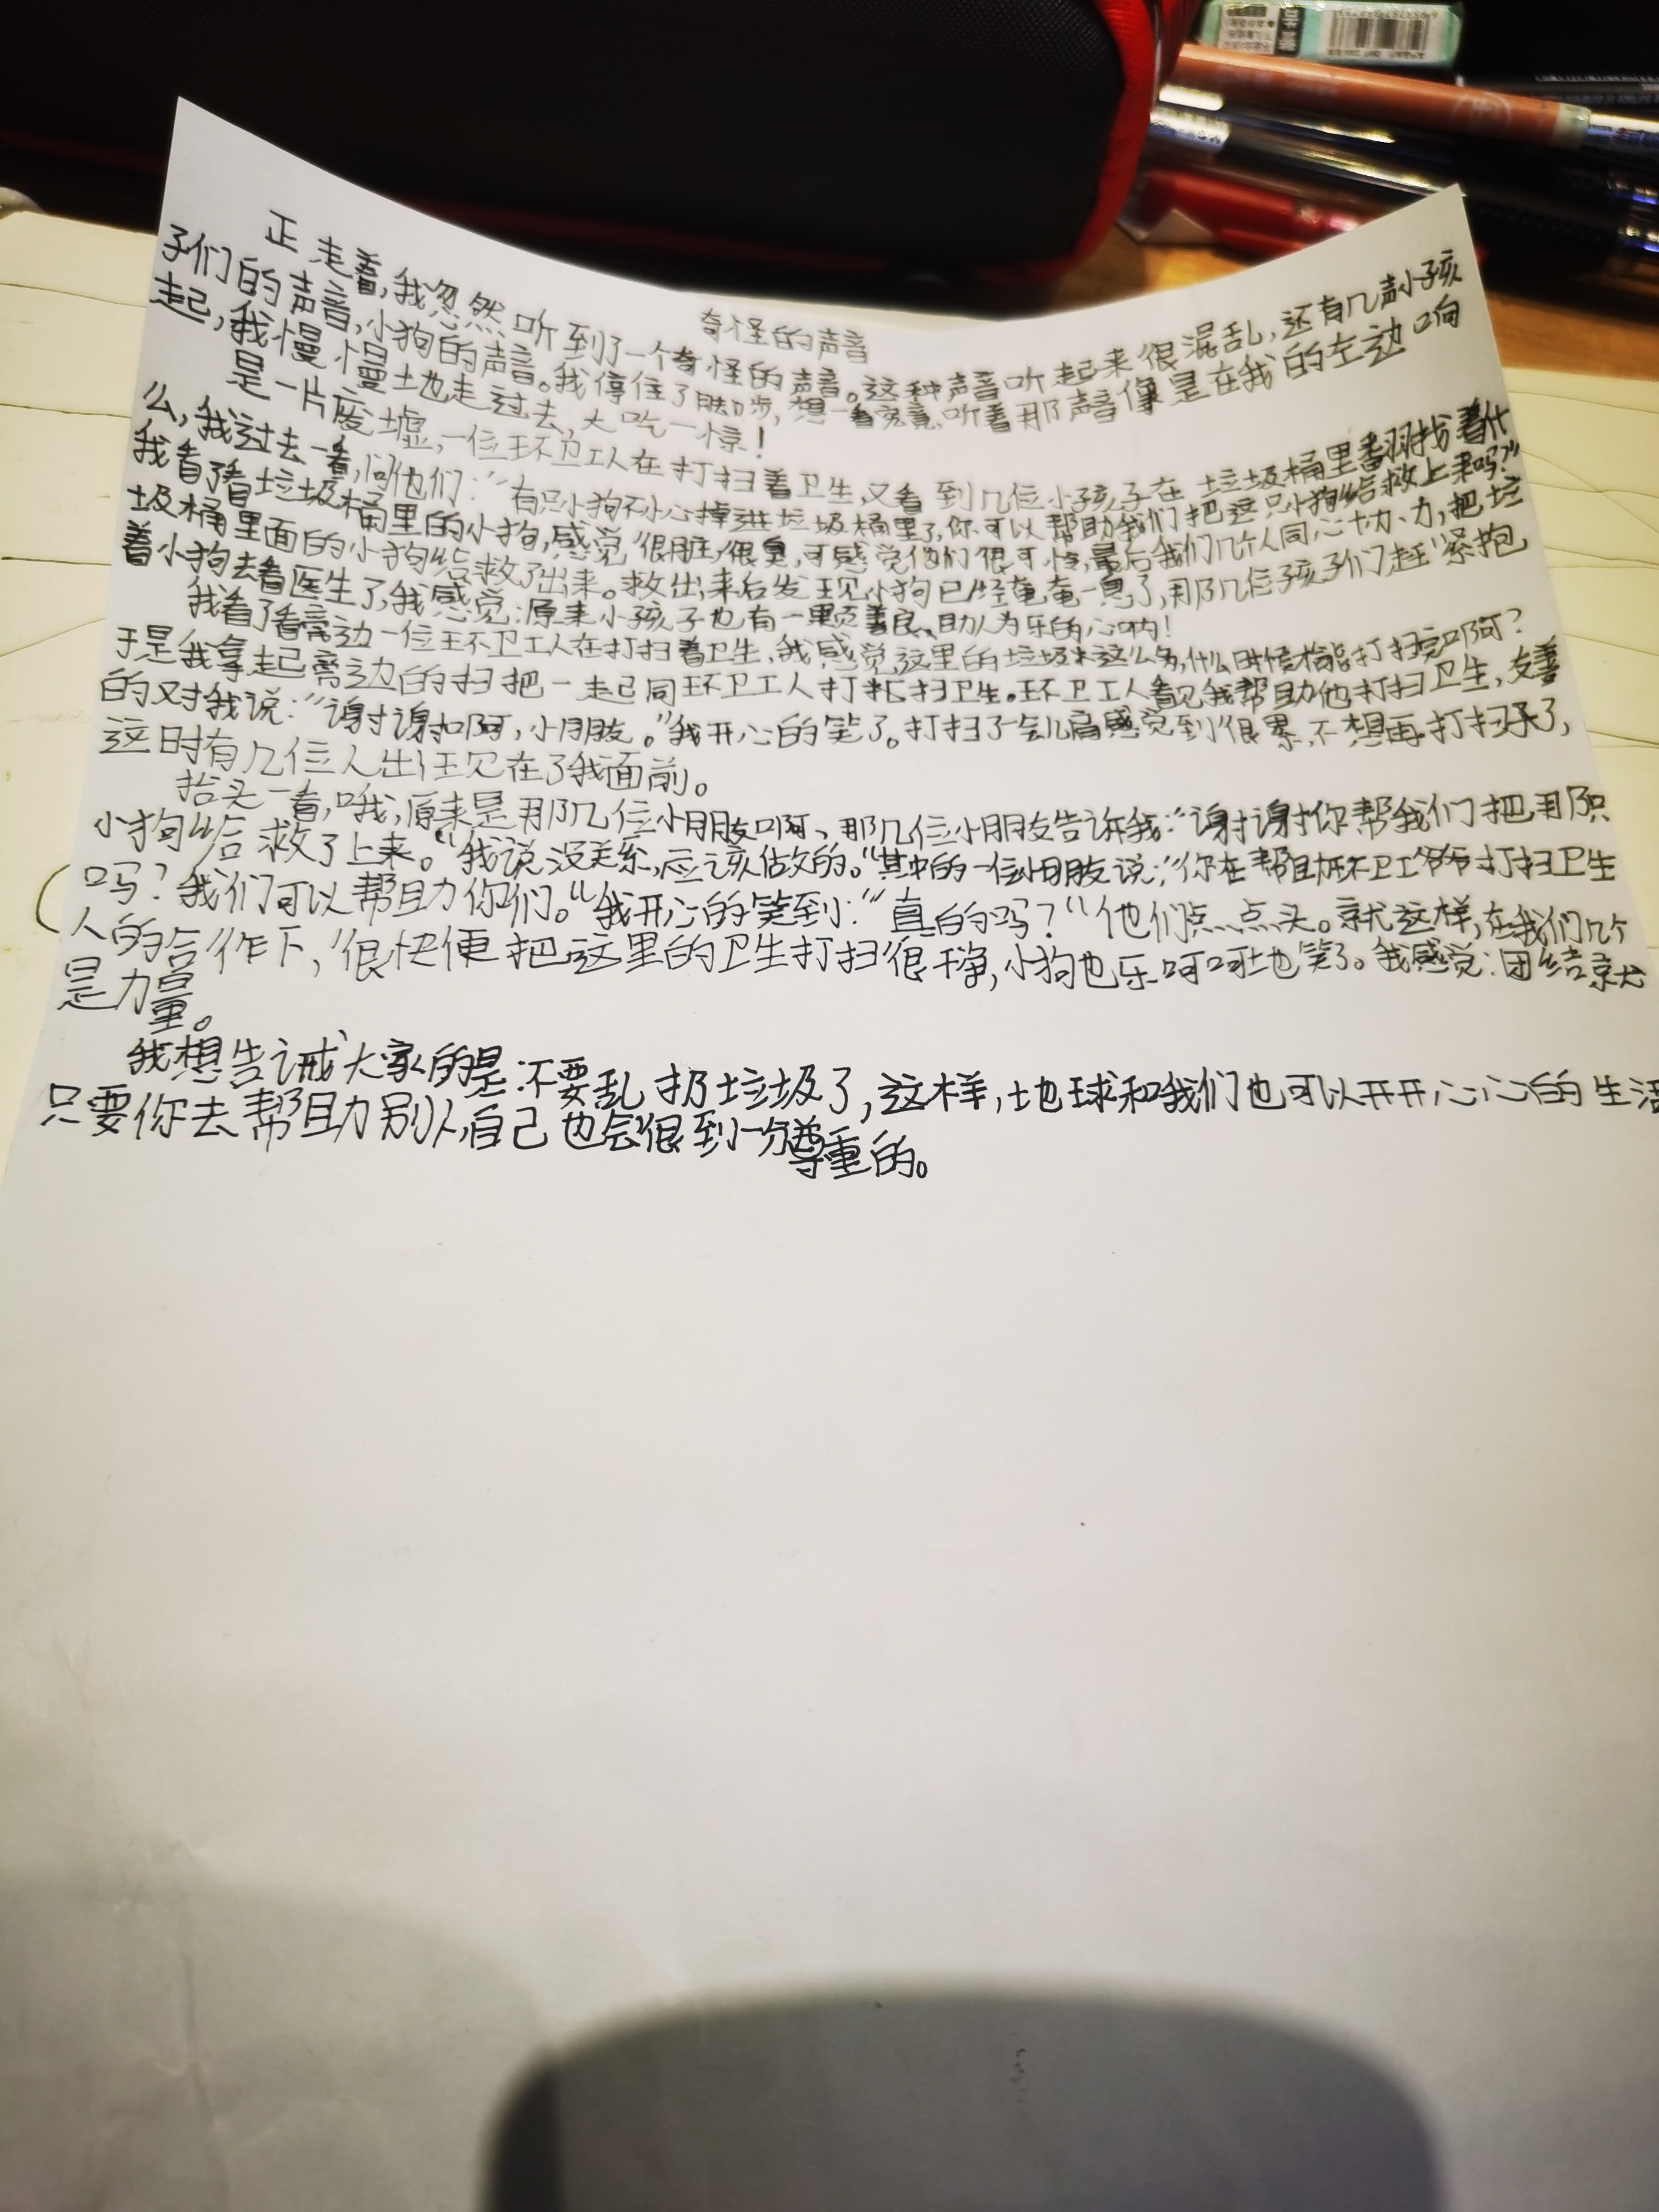 奇怪的声音
正走着,我忽然听到了一个奇怪的声音。这种声音听起来很混乱,还有几声小孩
子们的声音,小狗的声音。我停住了脚步,想一看究竟,听着那声音像是在我的左边响
起,我慢慢地走过去,大吃一惊!
是一片废墟,一位环卫工人在打扫着卫生,又看到几位小孩子在垃圾桶里翻找着什
么,我过去一看,问他们:“有只小狗不小心掉进垃圾桶里了,你可以帮助我们把这只小狗给救上来吗?”
我看了看垃圾桶里的小狗,感觉很脏,很臭,可感觉他们很可怜,最后我们几个人同心协力,把垃
圾桶里面的小狗给救了出来。救出来后发现小狗已经奄奄一息了,那几位孩子们,赶紧抱
着小狗去看医生了,我感觉:原来小孩子也有一颗善良、助人为乐的心呐!
我看了看旁边一位环卫工人在打扫着卫生,我感觉,这里的垃圾这么多,什么时候才能打扫完啊?
于是我拿起旁边的扫把一起同环卫工人打扫卫生。环卫工人看见我帮助他打扫卫生,友善
的对我说:“谢谢啊,小朋友。”我开心的笑了。打扫了会儿感觉到很累,不想再打扫了,
这时有几位人出现在了我面前。
抬头一看,哦,原来是那几位小朋友啊、那几位小朋友告诉我:“谢谢你帮我们把那只
小狗给救了上来。“我说没关系,应该做的。“其中的一位小朋友说:“你在帮助环卫工爷爷打扫卫生
吗?我们可以帮助你们。“我开心的笑到:“真的吗?“他们点点头。就这样,在我们几个
人的合作下,很快便把这里的卫生打扫很干净,小狗也乐呵呵地笑了。我感觉:团结就
是力量。
我想告诫大家的是:不要乱扔垃圾了,这样,地球和我们也可以开开心心的生活
只要你去帮助别人,自己也会很到一份尊重的。